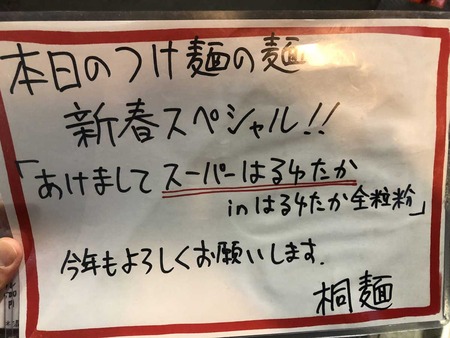 本日のつけ麺の麺
新春スペシャル!!
「あけましてスーパーはるゆたか
inはるゆたか全粒粉」
今年もよろしくお願いします.
桐麺